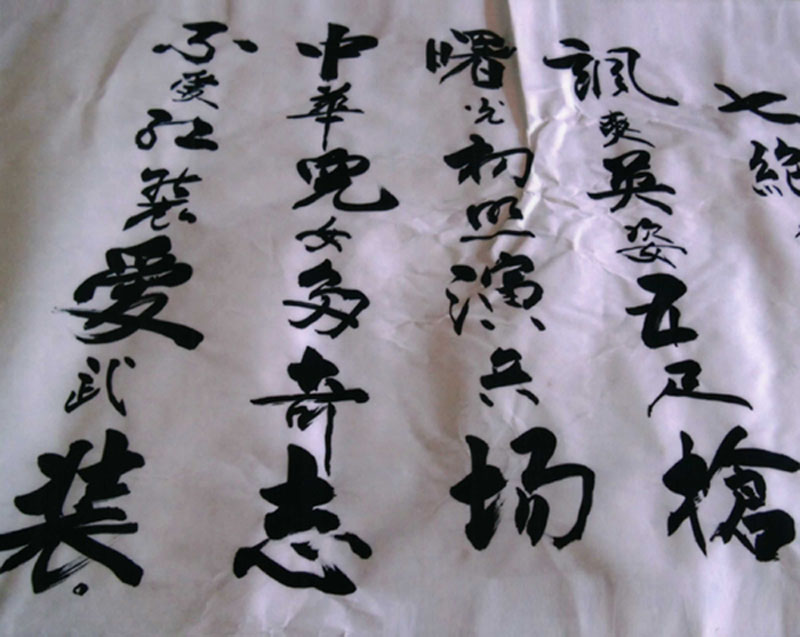 七绝
飒爽英姿五尺槍
曙光初照演兵場
中華兒女多奇志
不愛红装愛武装